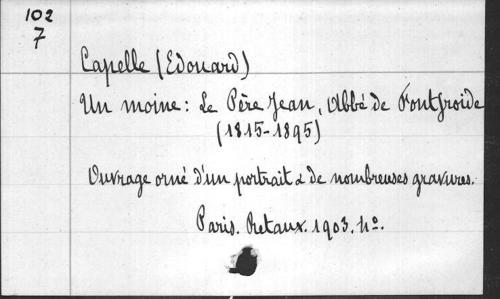 102
7
Capelle (Edouard)
Un moine: Le Père Jean, Abbé de Fontfroide
(1815-1895)
Ouvrage orné d'un portrait & de nombreuses gravures.
Paris. Retaux. 1903. 4º.